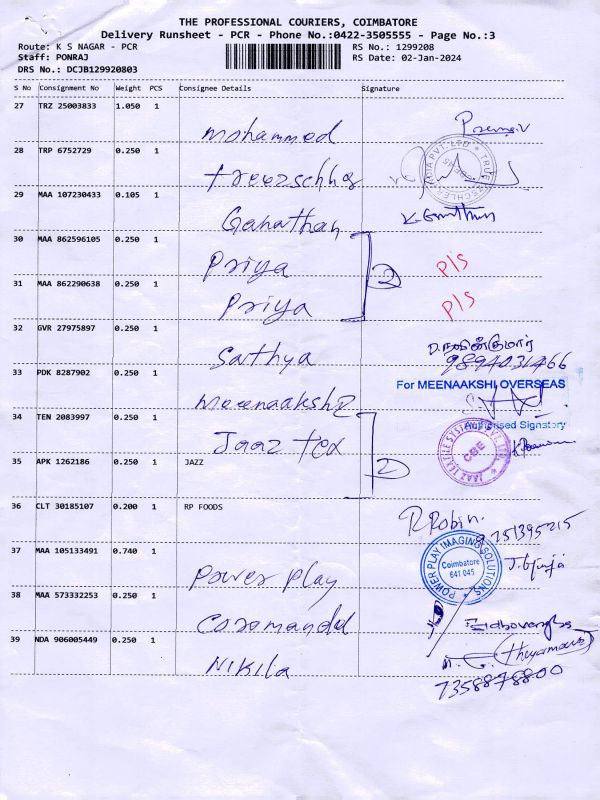 THE PROFESSIONAL COURIERS, COIMBATORE
Delivery Runsheet - PCR - Phone No.:0422-3505555 - Page No.:3
Route: K S NAGAR - PCR
RS No.: 1299208
Staff: PONRAJ
RS Date: 02-Jan-2024
DRS No.: DCJB129920803
S No Consignment No Weight PCS Consignee Details Signature
27 TRZ 25003833 1.050 1
Mohammed
28 TRP 6752729 0.250 1
29 MAA 107230433 0.105 1
Ganathan
30 MAA 862596105 0.250 1
Priya 2 P/S
31 MAA 862290638 0.250 1
Priya P/S
32 GVR 27975897 0.250 1
Sathya
33 PDK 8287902 0.250 1
For MEENAAKSHI OVERSEAS
Meenaakshi
Authorised Signatory
34 TEN 2083997 0.250 1
Jaaz tex 2
CBE
35 APK 1262186 0.250 1 JAZZ
36 CLT 30185107 0.200 1 RP FOODS
R. Robin.
9751395215
37 MAA 105133491 0.740 1
POWER PLAY IMAGING SOLUTIONS
Coimbatore
641 045
Power Play
38 MAA 573332253 0.250 1
Coromandel
39 NDA 906005449 0.250 1
Nikila
7358878800